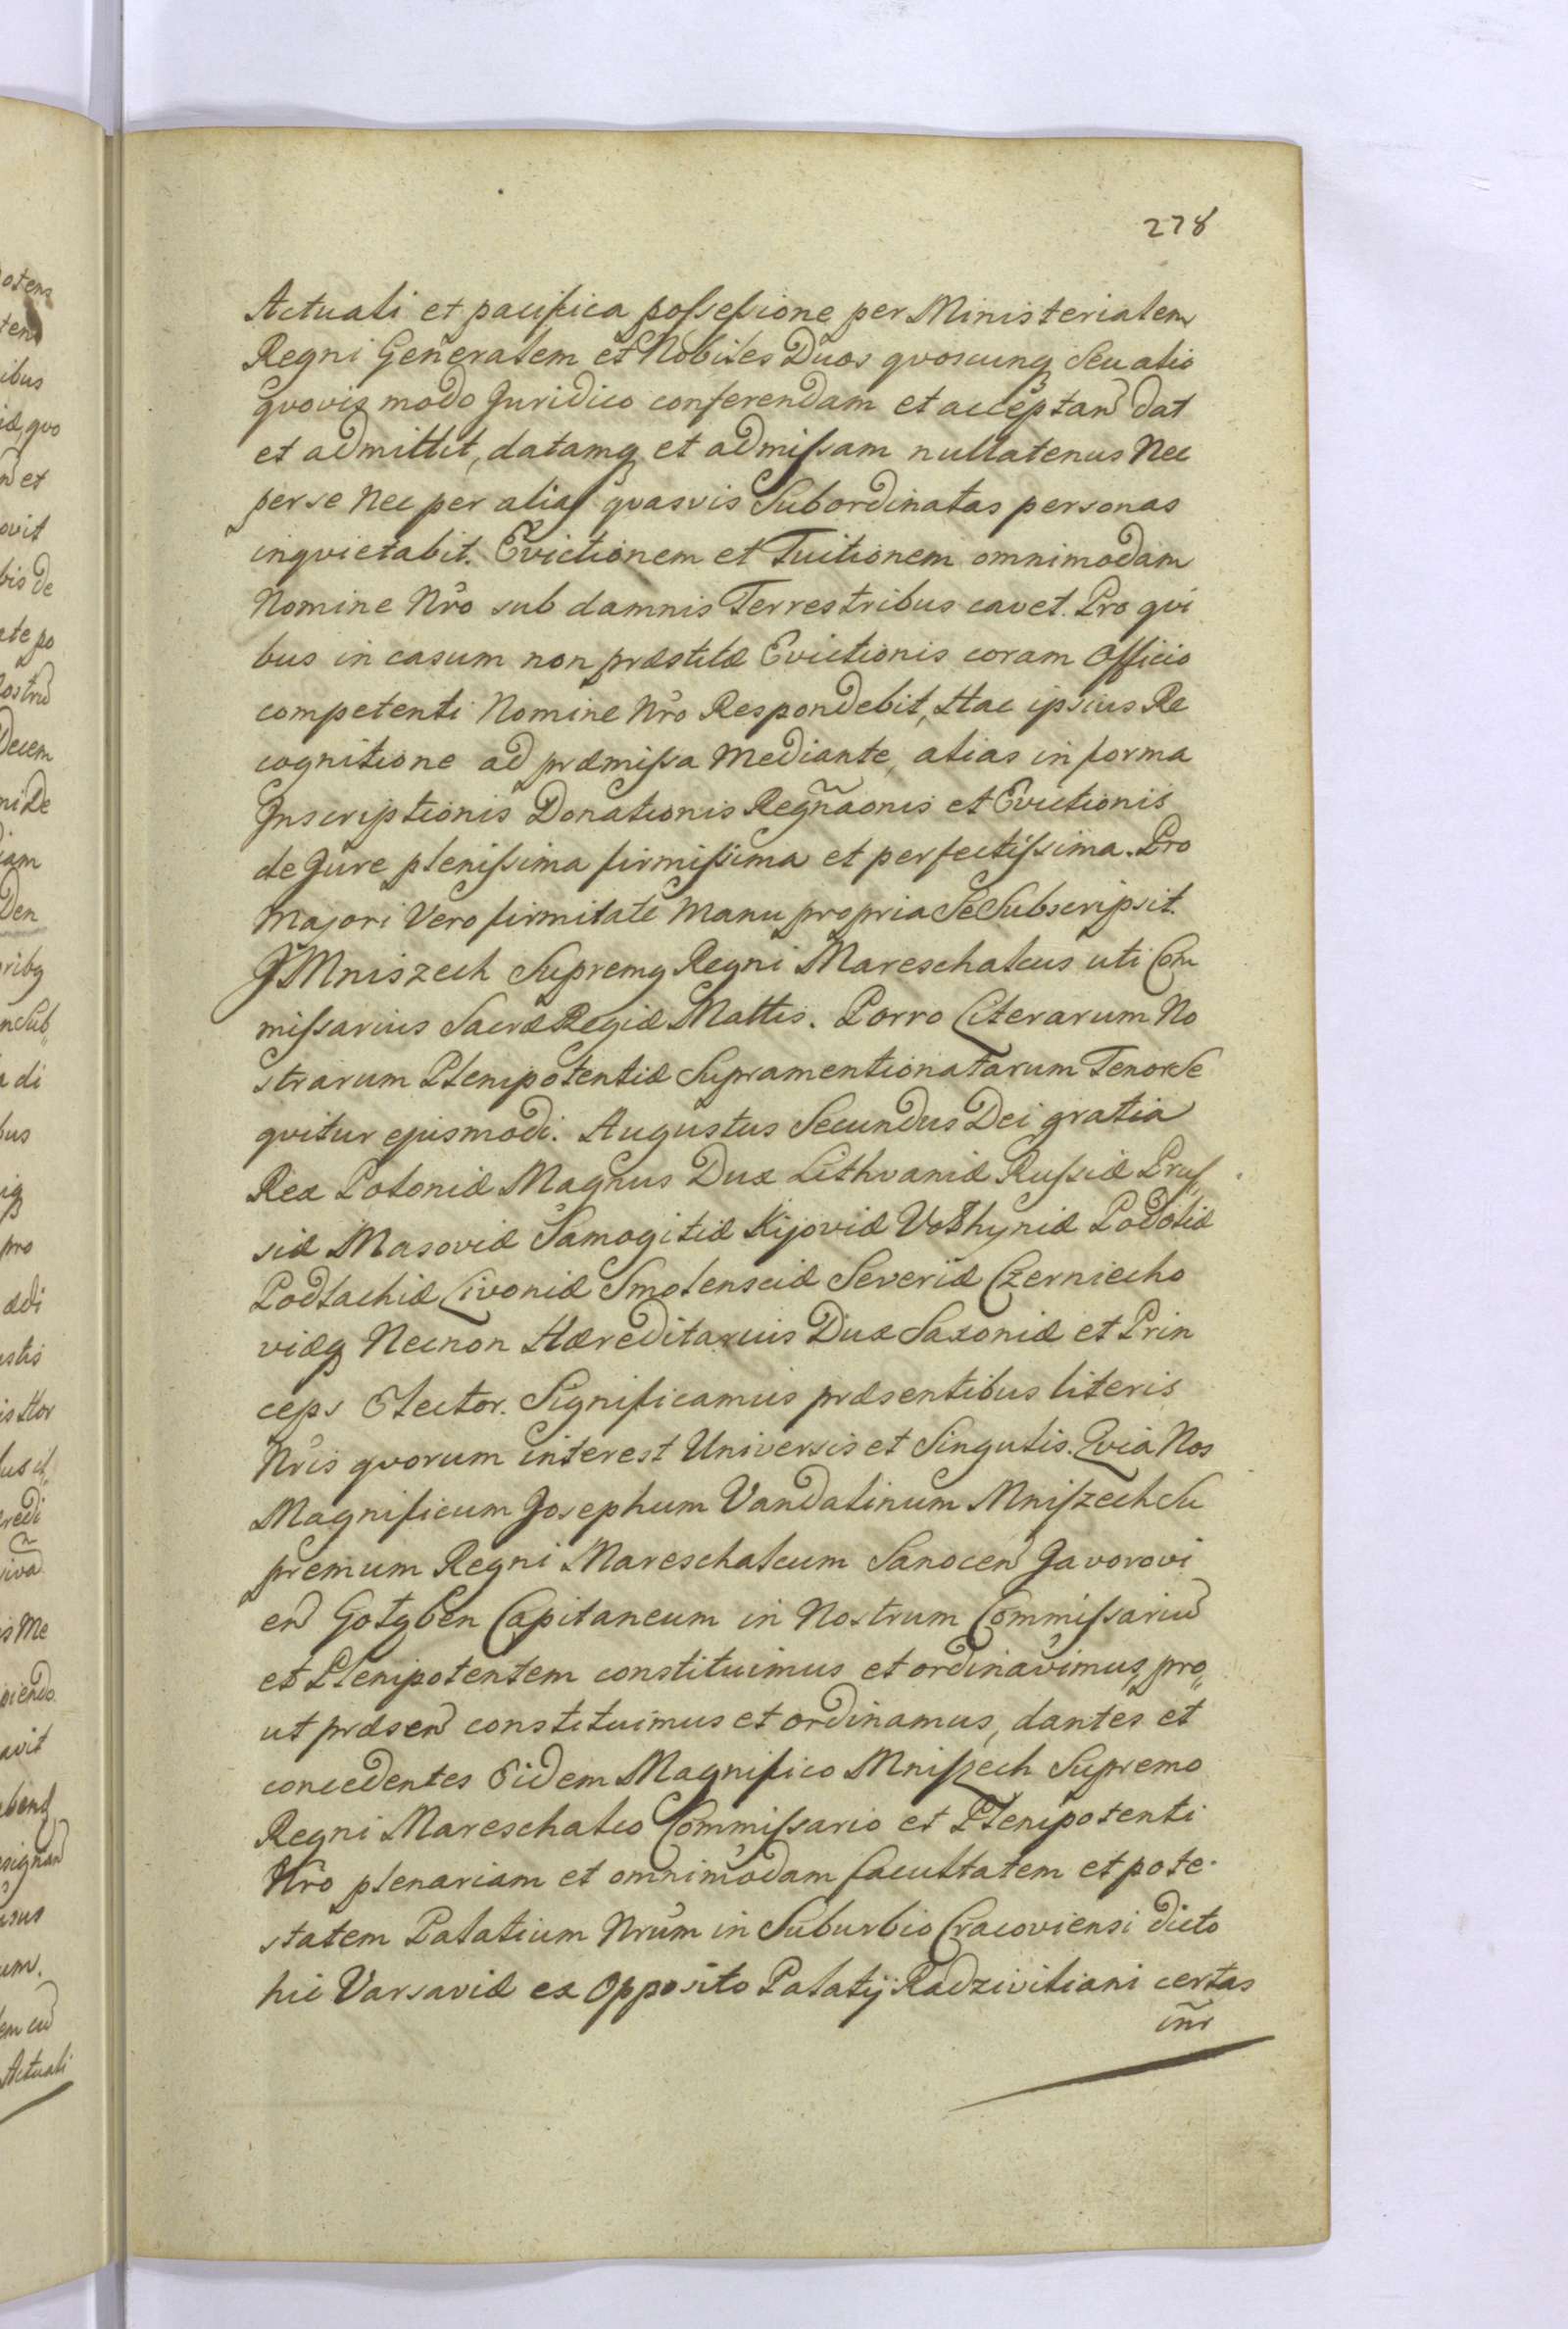 278
Actuali et pacifica possessione per Ministerialem
Regni Generalem et Nobiles Duos qvoscunq Seu alio
qvovis modo Juridico conferendam et acceptan dat
et admittit, datamq et admissam nullatenus Nec
per se Nec per alias qvasvis Subordinatas personas
inqvietabit. Evictionem et Tuitionem omnimodam
Nomine Nro sub damnis Terrestribus cavet. Pro qvi
bus in casum non præstitæ Evictionis coram Officio
competenti Nomine Nro Respondebit, Hac ipsius Re
cognitione ad præmissa Mediante, alias in forma
Inscriptionis Donationis Regnãonis et Evictionis
de Jure plenissima firmissima et perfectissima. Pro
Majori Vero firmitate Manu propria Se Subscripsit.
J Mniszech Supremq Regni Mareschalcus uti Com
missarius Sacræ Regiæ Mattis. Porro Literarum No
strarum Plenipotentiæ Supramentionatarum Tenor Se
qvitur ejusmodi. Augustus Secundus Dei gratia
Rex Poloniæ Magnus Dux Lithvaniæ Russiæ Prus
siæ Masoviæ Samogitiæ Kijoviæ Volhyniæ Podoliæ
Podlachiæ Livoniæ Smolensciæ Severiæ Czerniecho
viæq Necnon Hæreditarius Dux Saxoniæ et Prin
ceps Elector. Significamus præsentibus literis
Nris qvorum interest Universis et Singulis. Qvia Nos
Magnificum Josephum Vandalinum Mniszech Su
premum Regni Mareschalcum Sanocen Javorovi
en Golyben Capitaneum in Nostrum Commissariu
et Plenipotentem constituimus et ordinavimus, pro„
ut præsen constituimus et ordinamus, dantes et
concedentes Eidem Magnifico Mniszech Supremo
Regni Mareschalco Commissario et Plenipotenti
Nro plenariam et omnimodam facultatem et pote-
statem Palatium Nrum in Suburbio Cracoviensi dicto
hic Varsaviæ ex Opposito Palatij Radziviliani certas
inr